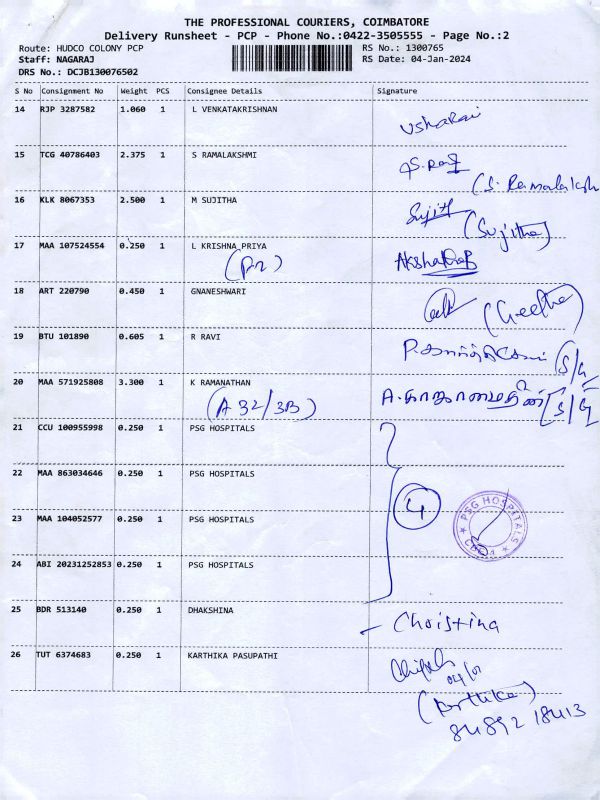 THE PROFESSIONAL COURIERS, COIMBATORE
Delivery Runsheet - PCP - Phone No.:0422-3505555 - Page No.:2
Route: HUDCO COLONY PCP RS No.: 1300765
Staff: NAGARAJ RS Date: 04-Jan-2024
DRS No.: DCJB130076502
S No Consignment No Weight PCS Consignee Details Signature
14 RJP 3287582 1.060 1 L VENKATAKRISHNAN
15 TCG 40786403 2.375 1 S RAMALAKSHMI S. Raj
(S. Ramalaksh
16 KLK 8067353 2.500 1 M SUJITHA Sujith
(Sujitha)
17 MAA 107524554 0.250 1 L KRISHNA PRIYA
18 ART 220790 0.450 1 GNANESHWARI (Geetha)
19 BTU 101890 0.605 1 R RAVI (S/G)
20 MAA 571925808 3.300 1 K RAMANATHAN
(A 32/3B) (S/G)
21 CCU 100955998 0.250 1 PSG HOSPITALS
22 MAA 863034646 0.250 1 PSG HOSPITALS
4
23 MAA 104052577 0.250 1 PSG HOSPITALS
PSG HOSPITALS
24 ABI 20231252853 0.250 1 PSG HOSPITALS
25 BDR 513140 0.250 1 DHAKSHINA - Christina
26 TUT 6374683 0.250 1 KARTHIKA PASUPATHI
04/01
(Karthika)
84892 18413